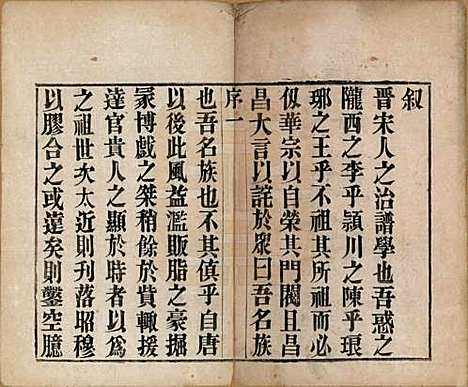 叙
晉宋人之治譜學也吾惑之
隴西之李乎潁川之陳乎琅
琊之王乎不祖其所祖而必
伋華宗以自榮其門閥且昌
昌大言以詫於眾曰吾名族
序一
也吾名族也不其慎乎自唐
以後此風益濫販脂之豪掘
冡博戲之桀稍餘於貲輙援
達官貴人之顯於時者以為
之祖世次太近則刋落昭穆
以膠合之或遠矣則鑿空臆